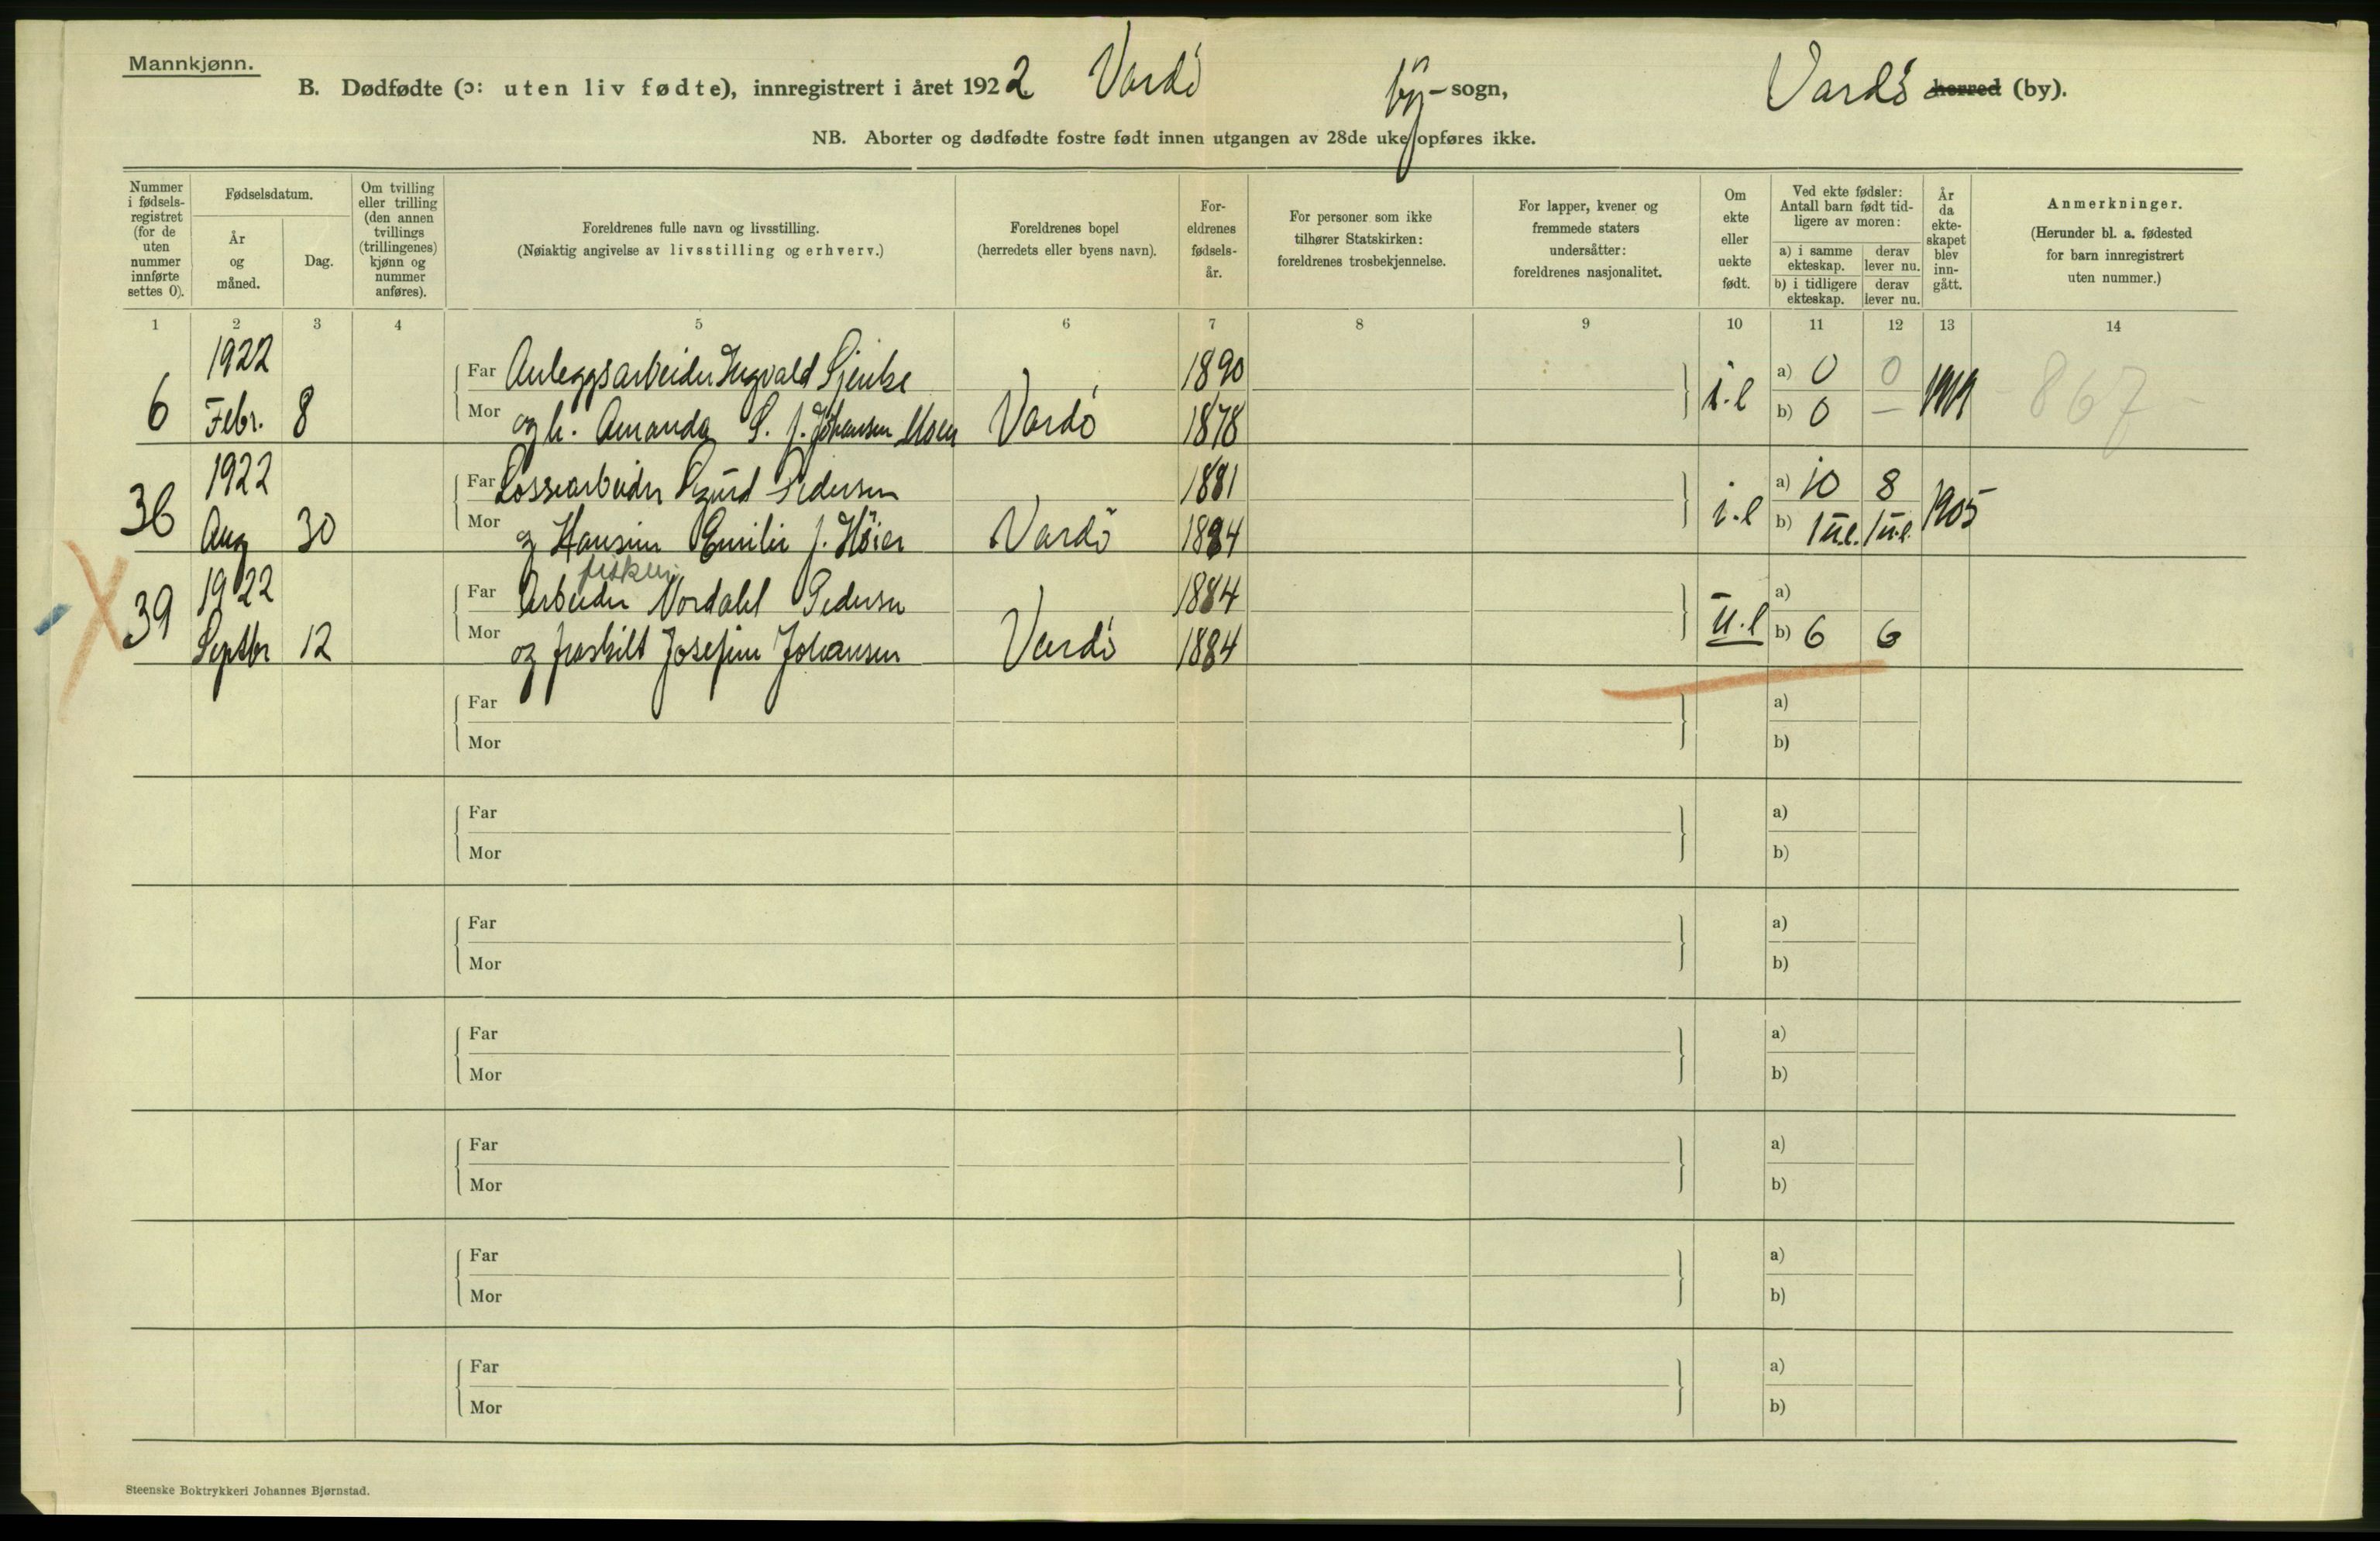 Mannkjønn.
B. Dødfødte (ɔ: uten liv fødte), innregistrert i året 1922. Vardö by-sogn, Vardö herred (by).
NB. Aborter og dødfødte fostre født innen utgangen av 28de uke opføres ikke.
Nummer i fødsels-registret (for de uten nummer innførte settes 0).
Fødselsdatum.
År og måned.
Dag.
Om tvilling eller trilling (den annen tvillings (trillingenes) kjønn og nummer anføres).
Foreldrenes fulle navn og livsstilling.
(Nøiaktig angivelse av livsstilling og erhverv.)
Foreldrenes bopel
(herredets eller byens navn).
For-eldrenes fødsels-år.
For personer som ikke tilhører Statskirken: foreldrenes trosbekjennelse.
For lapper, kvener og fremmede staters undersåtter: foreldrenes nasjonalitet.
Om ekte eller uekte født.
Ved ekte fødsler: Antall barn født tid-ligere av moren:
a) i samme ekteskap. derav lever nu.
b) i tidligere ekteskap. derav lever nu.
År da ekte-skapet blev inn-gått.
Anmerkninger.
(Herunder bl. a. fødested for barn innregistrert uten nummer.)
1 2 3 4 5 6 7 8 9 10 11 12 13 14
1922 Far Anleggsarbeider Ingvald 1890 a) 0 0
6 Febr. 8 Mor og h. Amanda S. f. Johansen Moen Vardö 1878 i.e b) 0 — 1919 867
1922 Far Lossearbeider Sigurd Pedersen 1881 a) 10 8
36 Aug 30 Mor og Hansine Emilie f. Höier Vardö 1884 i.e b) 1 u.e. 1 u.e. 1905
fisker
1922 Far Arbeider Nordahl Pedersen 1884 a)
39 Septbr 12 Mor og fraskilt Josefine Johansen Vardö 1884 u.e b) 6 6
Far a)
Mor b)
Far a)
Mor b)
Far a)
Mor b)
Far a)
Mor b)
Far a)
Mor b)
Far a)
Mor b)
Far a)
Mor b)
Steenske Boktrykkeri Johannes Bjørnstad.